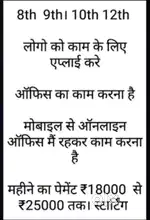 8th 9th। 10th 12th
लोगो को काम के लिए
एप्लाई करे
ऑफिस का काम करना है
मोबाइल से ऑनलाइन
ऑफिस मैं रहकर काम करना
है
महीने का पेमेंट ₹18000 से
₹25000 तक। स्टार्टिंग